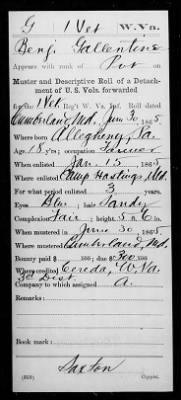 G | 1 Vet | W. Va.
Benj. Gallentine
Appears with rank of Pvt on
Muster and Descriptive Roll of a Detach-
ment of U. S. Vols. forwarded
for the 1 Vet Reg't W. Va. Inf. Roll dated
Cumberland, Md. June 30, 1865.
Where born Allegheny, Pa.
Age 18 y'rs; occupation Farmer
When enlisted Jan. 15, 1865.
Where enlisted Camp Hastings, Md.
For what period enlisted 3 years.
Eyes Blue; hair Sandy
Complexion Fair; height 5 ft. 6 in.
When mustered in June 30, 1865.
Where mustered in Cumberland, Md.
Bounty paid $ 100; due $ 300 100
Where credited Cereda, W. Va.
3d Dist.
Company to which assigned A.
Remarks:
Book mark:
Saxton
Copyist.